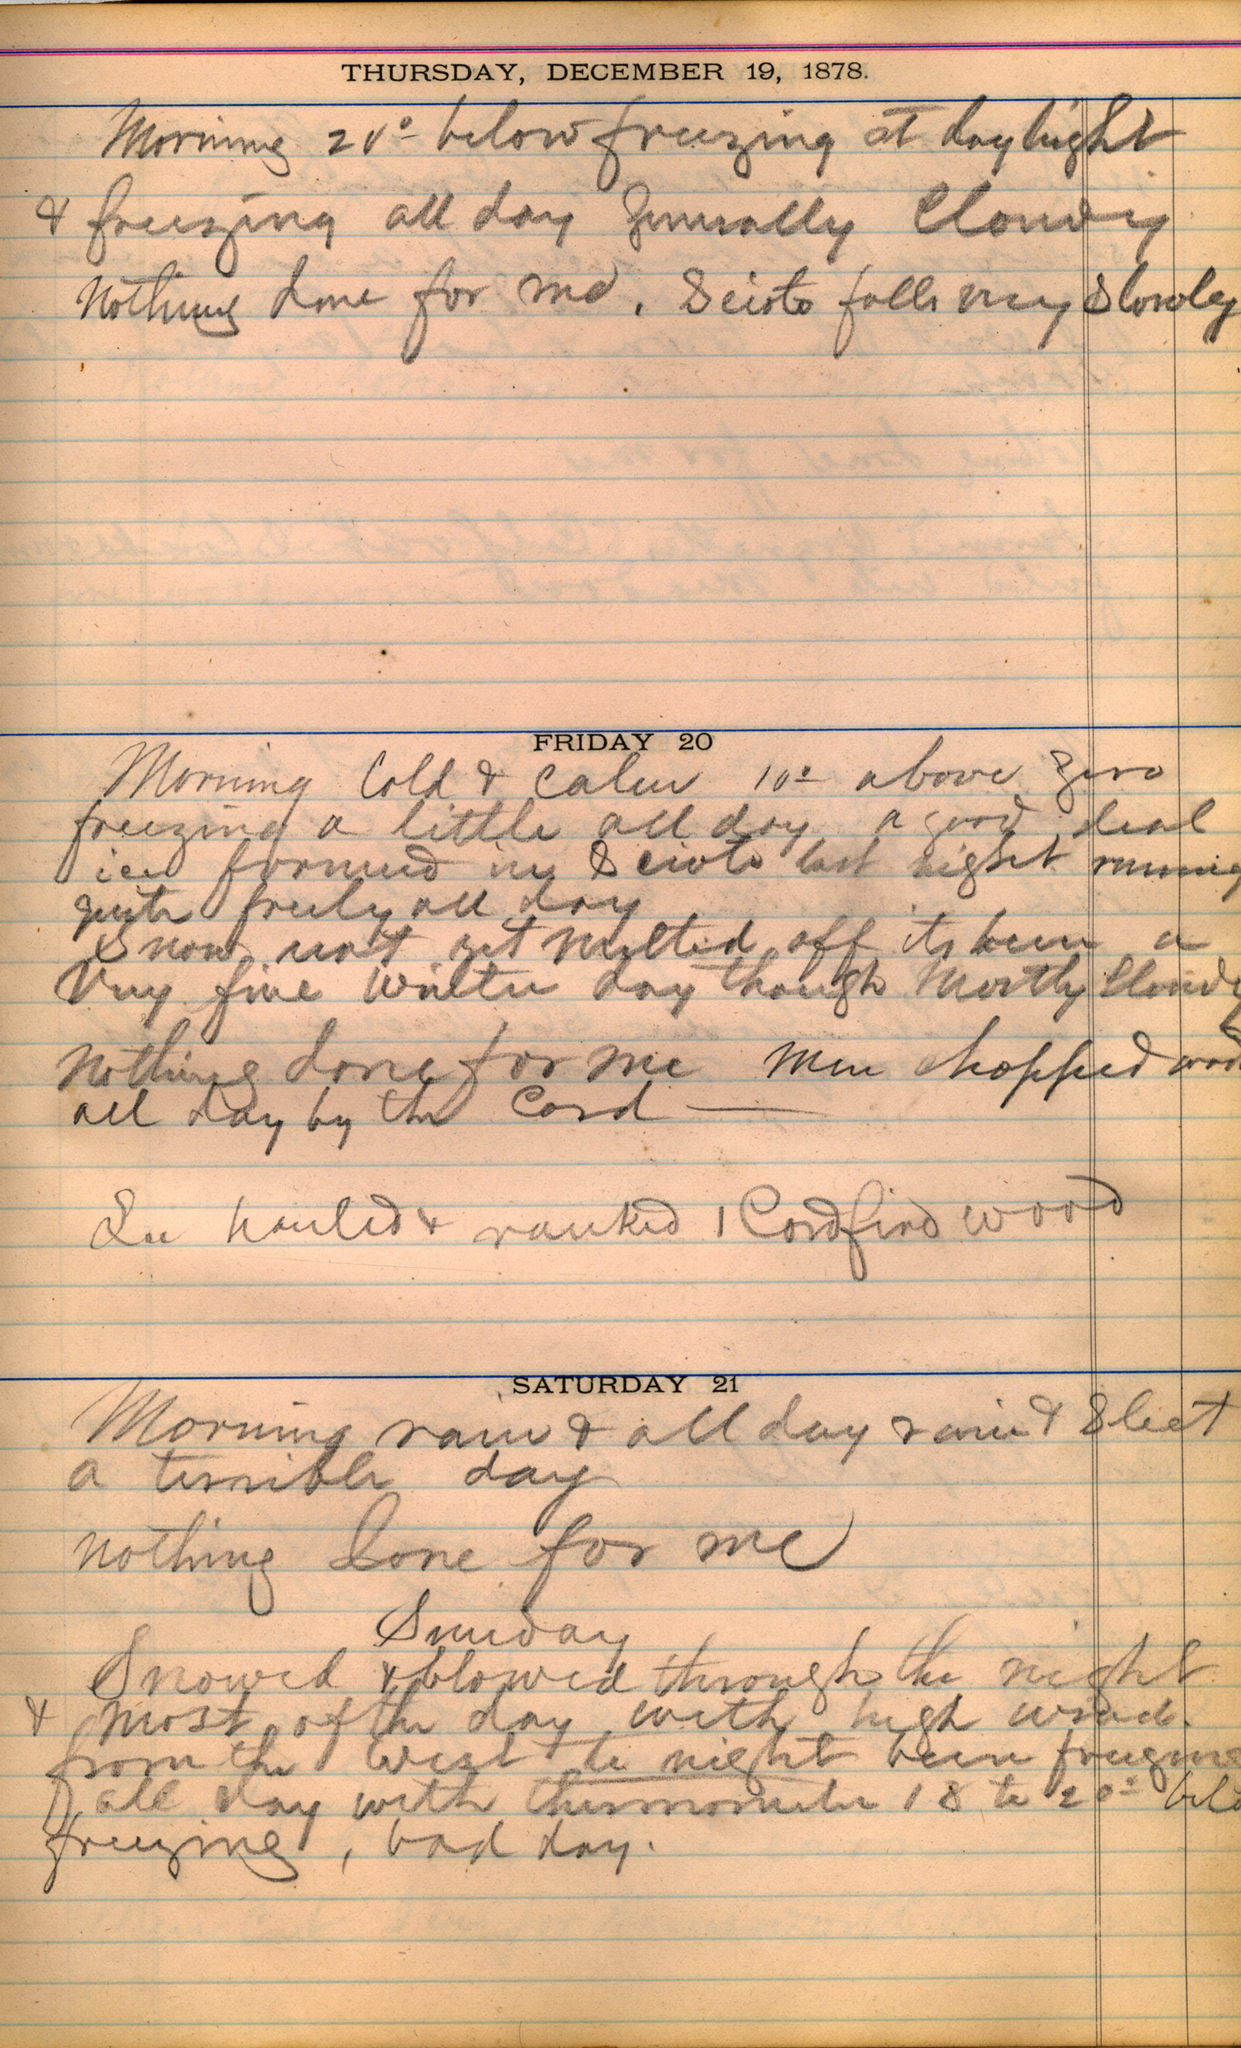 THURSDAY, DECEMBER 19, 1878.
Morning 20° below freezing at day light
& freezing all day generally Cloudy
Nothing done for me. Scioto falls very Slowly
FRIDAY 20
Morning Cold & Calm 10° above Zero
freezing a little all day a good deal
ice formed in Scioto last night running
quite freely all day
Snow not yet melted off its been a
Very fine Winter day though Mostly Cloudy
Nothing done for me Men chopped wood
all day by the Cord —
hauled & ranked 1 Cord fire wood
SATURDAY 21
Morning rain & all day rain & Sleet
a terrible day
nothing Done for me
Sunday
Snowed & blowed through the night
& most of the day with high wind
from the West to night been freezing
all day with thermometer 18 to 20° belo
freezing, bad day.